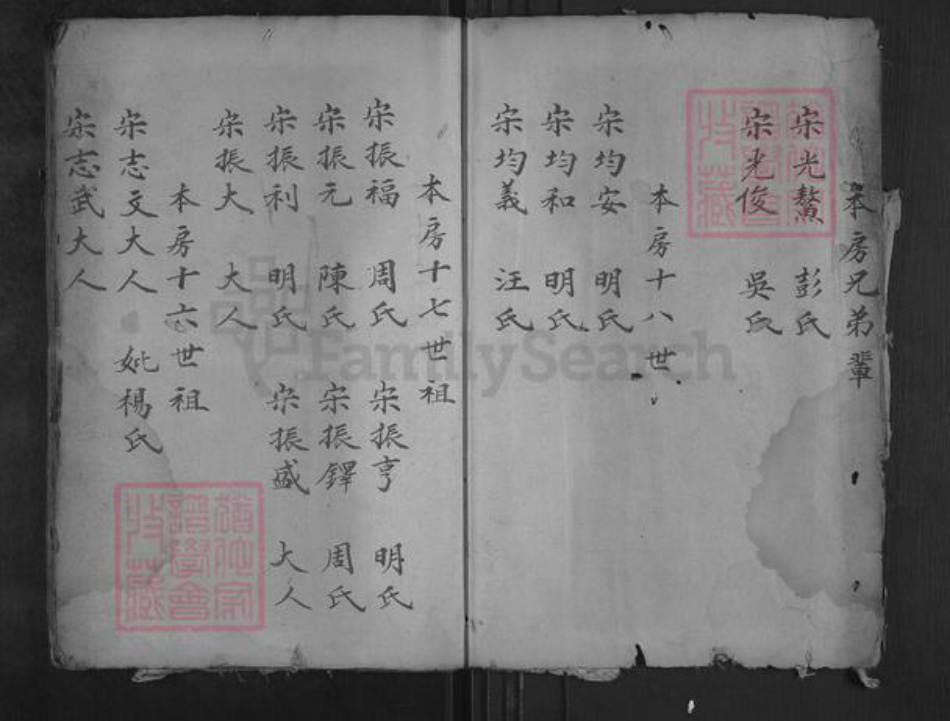 本房兄弟輩
宋光鰲 彭氏
宋光俊 吳氏
本房十八世
宋均安 明氏
宋均和 明氏
宋均義 汪氏
本房十七世祖
宋振福 周氏 宋振亨 明氏
宋振元 陳氏 宋振鐸 周氏
宋振利 明氏 宋振盛 大人
宋振大 大人
本房十六世祖
宋志文大人 妣楊氏
宋志武大人
FamilySearch